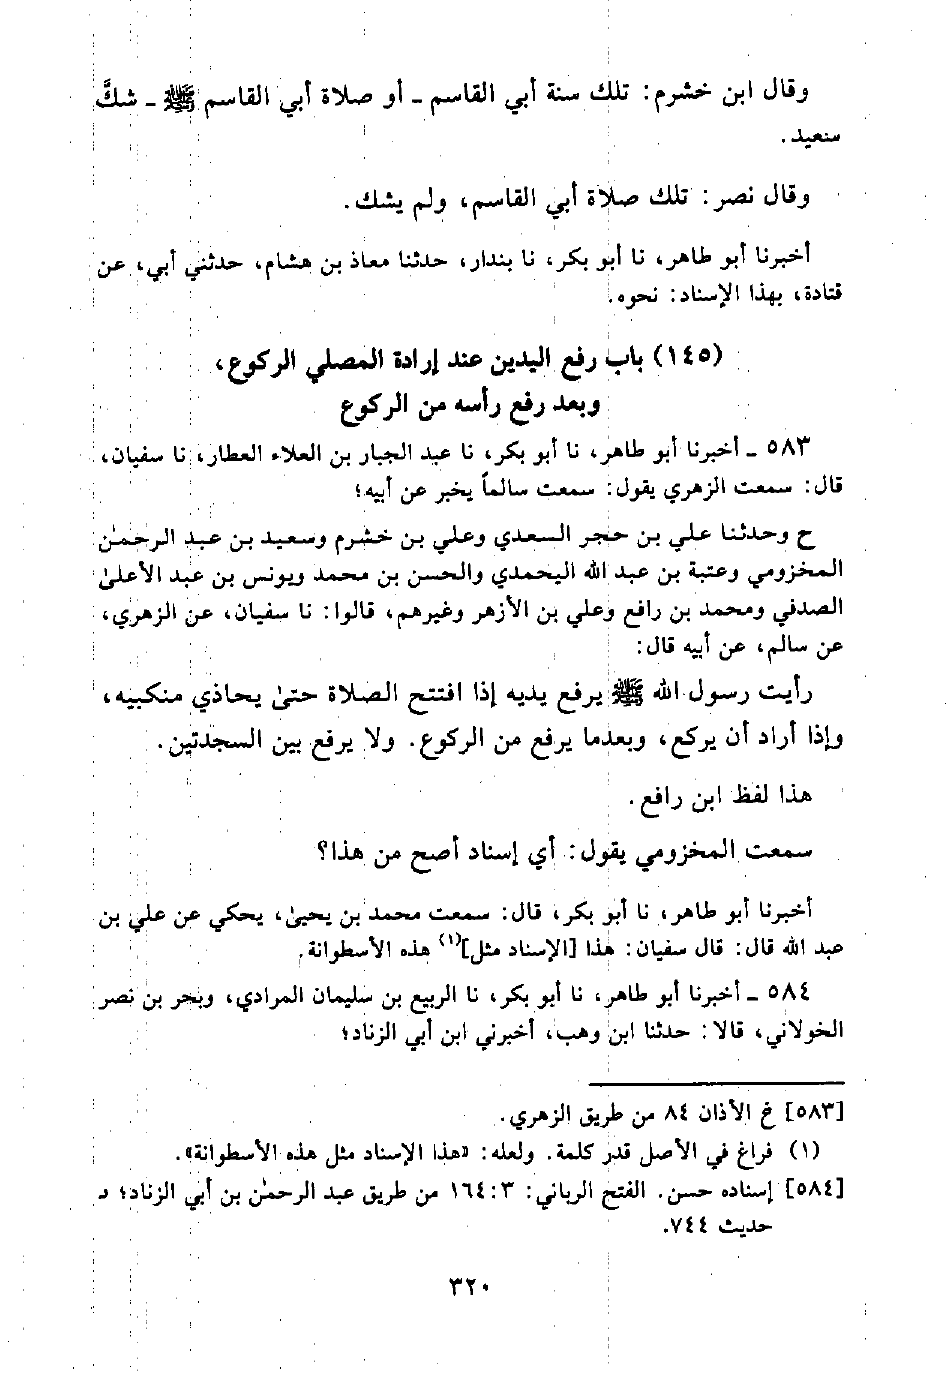 وقال ابن خشرم: تلك سنة أبي القاسم ـ أو صلاة أبي القاسم ﷺ ـ شكَّ
سعيد.
وقال نصر: تلك صلاة أبي القاسم، ولم يشك.
أخبرنا أبو طاهر، نا أبو بكر، نا بندار، حدثنا معاذ بن هشام، حدثني أبي، عن
قتادة، بهذا الإسناد: نحوه.
(١٤٥) باب رفع اليدين عند إرادة المصلي الركوع،
وبعد رفع رأسه من الركوع
٥٨٣ ـ أخبرنا أبو طاهر، نا أبو بكر، نا عبد الجبار بن العلاء العطار، نا سفيان،
قال: سمعت الزهري يقول: سمعت سالماً يخبر عن أبيه؛
ح وحدثنا علي بن حجر السعدي وعلي بن خشرم وسعيد بن عبد الرحمٰن
المخزومي وعتبة بن عبد الله اليحمدي والحسن بن محمد ويونس بن عبد الأعلىٰ
الصدفي ومحمد بن رافع وعلي بن الأزهر وغيرهم، قالوا: نا سفيان، عن الزهري،
عن سالم، عن أبيه قال:
رأيت رسول الله ﷺ يرفع يديه إذا افتتح الصلاة حتىٰ يحاذي منكبيه،
وإذا أراد أن يركع، وبعدما يرفع من الركوع. ولا يرفع بين السجدتين.
هذا لفظ ابن رافع.
سمعت المخزومي يقول: أي إسناد أصح من هذا؟
أخبرنا أبو طاهر، نا أبو بكر، قال: سمعت محمد بن يحيىٰ، يحكي عن علي بن
عبد الله قال: قال سفيان: هذا [الإسناد مثل](١) هذه الأسطوانة.
٥٨٤ ـ أخبرنا أبو طاهر، نا أبو بكر، نا الربيع بن سليمان المرادي، وبحر بن نصر
الخولاني، قالا: حدثنا ابن وهب، أخبرني ابن أبي الزناد؛
[٥٨٣] خ الأذان ٨٤ من طريق الزهري.
(١) فراغ في الأصل قدر كلمة. ولعله: «هذا الإسناد مثل هذه الأسطوانة».
[٥٨٤] إسناده حسن. الفتح الرباني: ٣:١٦٤ من طريق عبد الرحمٰن بن أبي الزناد؛ د
حديث ٧٤٤.
٣٢٠